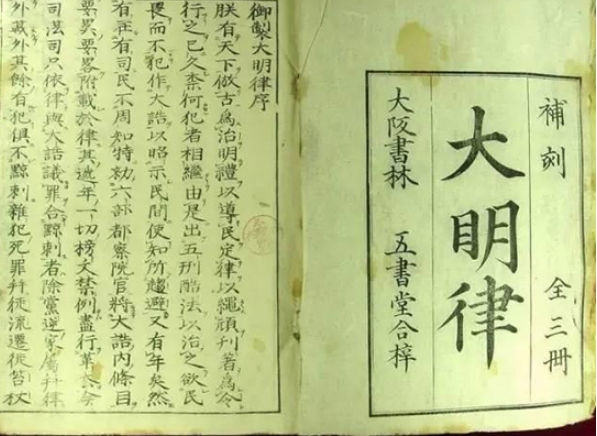 補刻 全三冊
大明律
大阪書林 五書堂合梓
御製大明律序
朕有天下倣古爲治明禮以導民定律以繩頑刊著爲令
行之已久柰何犯者相繼由是出五刑酷法以治之欲民
畏而不犯作大誥以昭示民間使知所趨避又有年矣然
有在有司民不周知特勅六部都察院官將大誥内條目
要畧附載於律其逓年一切榜文禁例盡行革去今
司法司只依律與大誥議罪合黥刺者除黨逆家屬幷律
外載外其餘有犯俱不黥刺雜犯死罪幷徒流遷徙笞杖